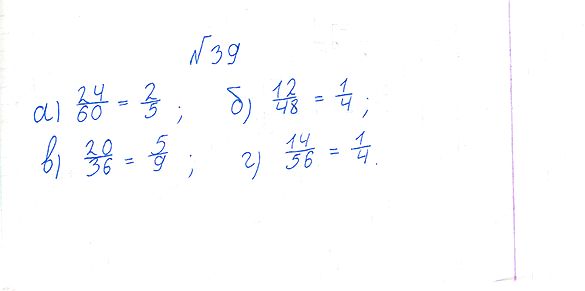 №39
а) 24/60 = 2/5 ; б) 12/48 = 1/4 ;
в) 20/36 = 5/9 ; г) 14/56 = 1/4.